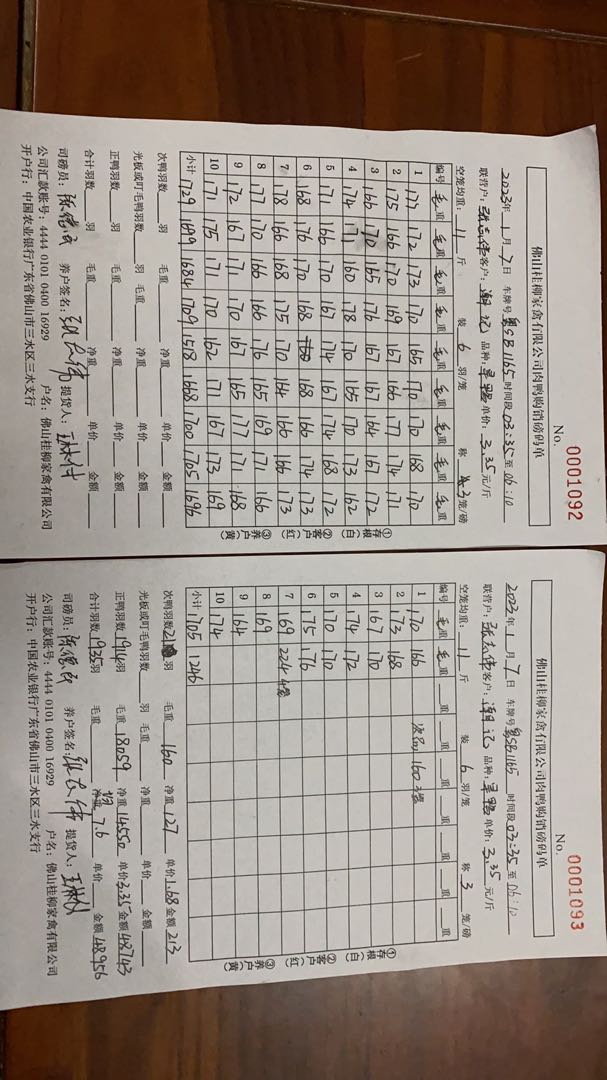 佛山桂柳家禽有限公司肉鸭购销磅码单
No. 0001092
2023年1月7日 车牌号粤SB1165 时间段03:35至06:10
联营户: 张志伟 客户: 潮记 品种: 单价: 3.35元/斤
空笼均重: 11 斤 装 6 羽/笼 称 3 笼/磅
编号 毛重 毛重 毛重 毛重 毛重 毛重 毛重 毛重 毛重
1 177 172 173 170 165 170 170 168 170
2 175 166 170 169 167 166 177 174 171
3 166 170 165 176 167 167 164 167 172
4 174 171 160 178 170 165 170 173 162
5 171 166 170 167 174 167 174 168 172
6 168 176 170 168 168 166 174 173
7 178 166 168 175 170 164 166 166 173
8 177 170 166 166 176 165 169 171 166
9 172 167 171 170 167 165 177 171 168
10 171 175 171 170 162 171 167 173 169
小计 1729 1699 1684 1709 1518 1668 1700 1705 1696
①存根(白) ②客户(红) ③养户(黄)
次鸭羽数 羽 毛重 净重 单价 金额
光板或叮毛鸭羽数 羽 毛重 净重 单价 金额
正鸭羽数 羽 毛重 净重 单价 金额
合计羽数 羽 毛重 净重 单价 金额
司磅员: 养户签名: 提货人:
公司汇款账号: 4444 0101 0400 16929 户名: 佛山桂柳家禽有限公司
开户行: 中国农业银行广东省佛山市三水区三水支行
佛山桂柳家禽有限公司肉鸭购销磅码单
No. 0001093
2023年1月7日 车牌号粤SB1165 时间段03:35至06:10
联营户: 张志伟 客户: 潮记 品种: 单价: 3.35元/斤
空笼均重: 11 斤 装 6 羽/笼 称 3 笼/磅
编号 毛重 毛重 重 重 重 重 重 重 重
1 170 166 次品160 3笼
2 173 168
3 167 170
4 174 172
5 170 170
6 175 176
7 169 224 4笼
8 169
9 164
10 174
小计 1705 1246
①存根(白) ②客户(红) ③养户(黄)
次鸭羽数 21 羽 毛重 160 净重 127 单价 1.68 金额 213
光板或叮毛鸭羽数 羽 毛重 净重 单价 金额
正鸭羽数 1914 羽 毛重 18059 净重 14550 单价 3.35 金额 48743
合计羽数 1935 羽 毛重 净重 7.6 单价 金额 48956
司磅员: 养户签名: 提货人:
公司汇款账号: 4444 0101 0400 16929 户名: 佛山桂柳家禽有限公司
开户行: 中国农业银行广东省佛山市三水区三水支行